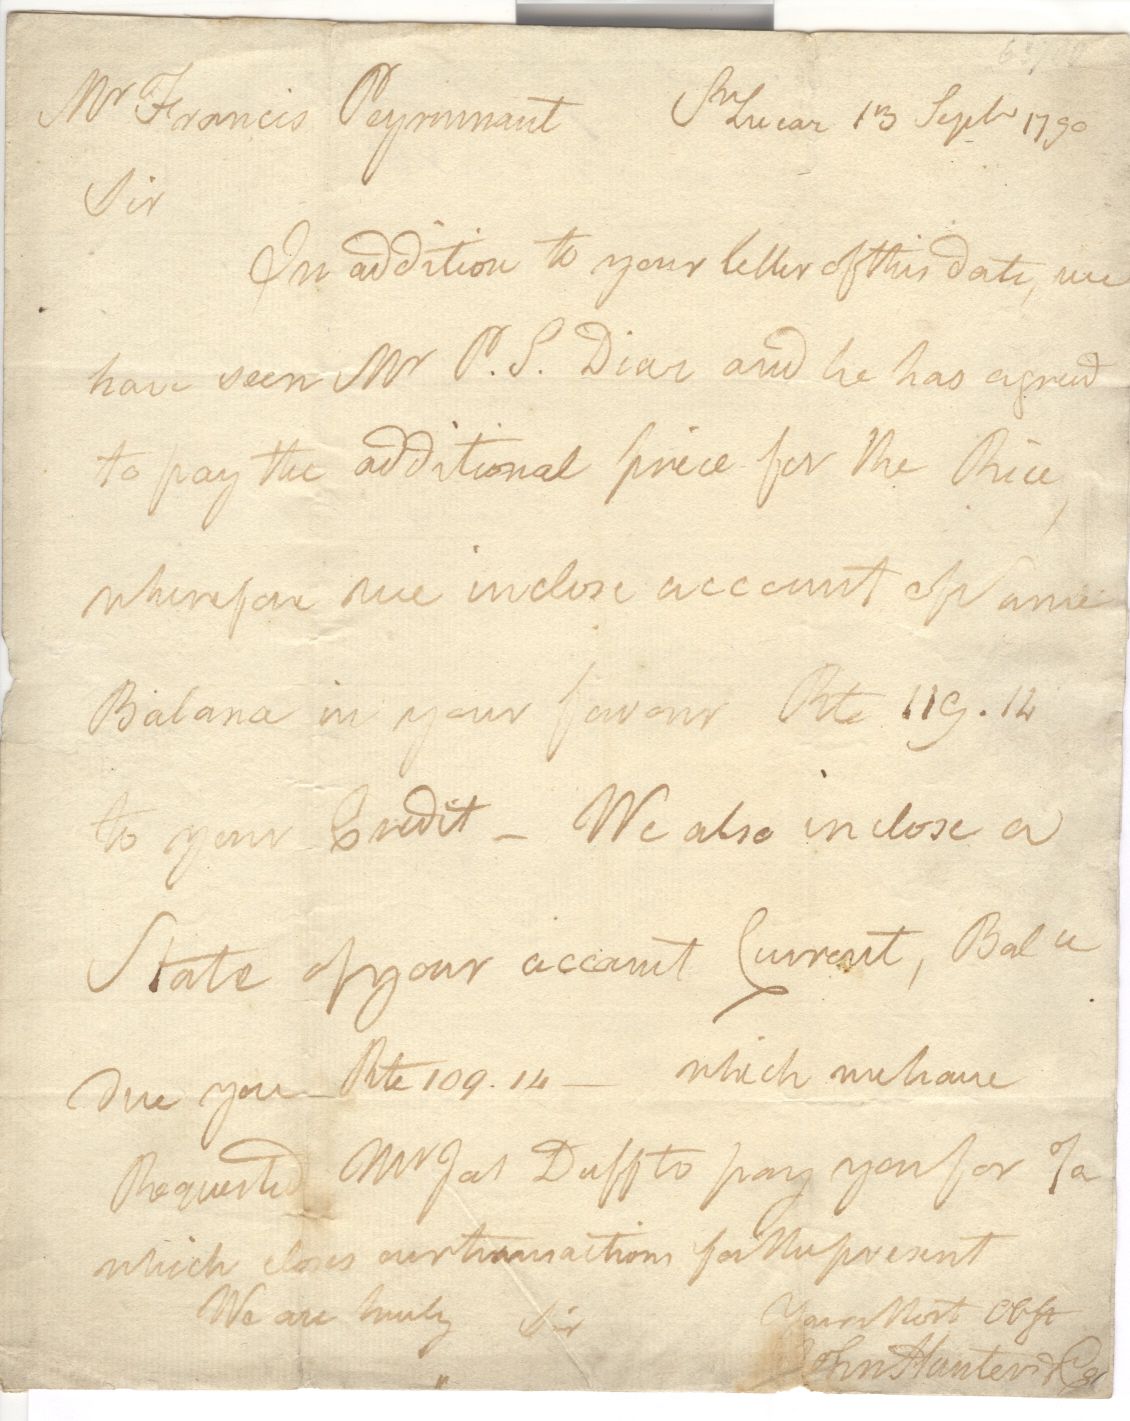 Mr Francis Peynnaut Sn Lucar 13 Septr 1790
Sir
In addition to your letter of this date, we
have seen Mr P. S. Diaz and he has agreed
to pay the additional price for the Rice,
wherefore we inclose account of Same
Balance in your favour Rte 119.14
to your Credit – We also inclose a
State of your account Current, Balce
due you – Rte 109.14 – which we have
Requested Mr Jas Duff to pay you for o/a
which closes our transactions for the present
We are truly Sir Your Most Obt
John Hunter & Co